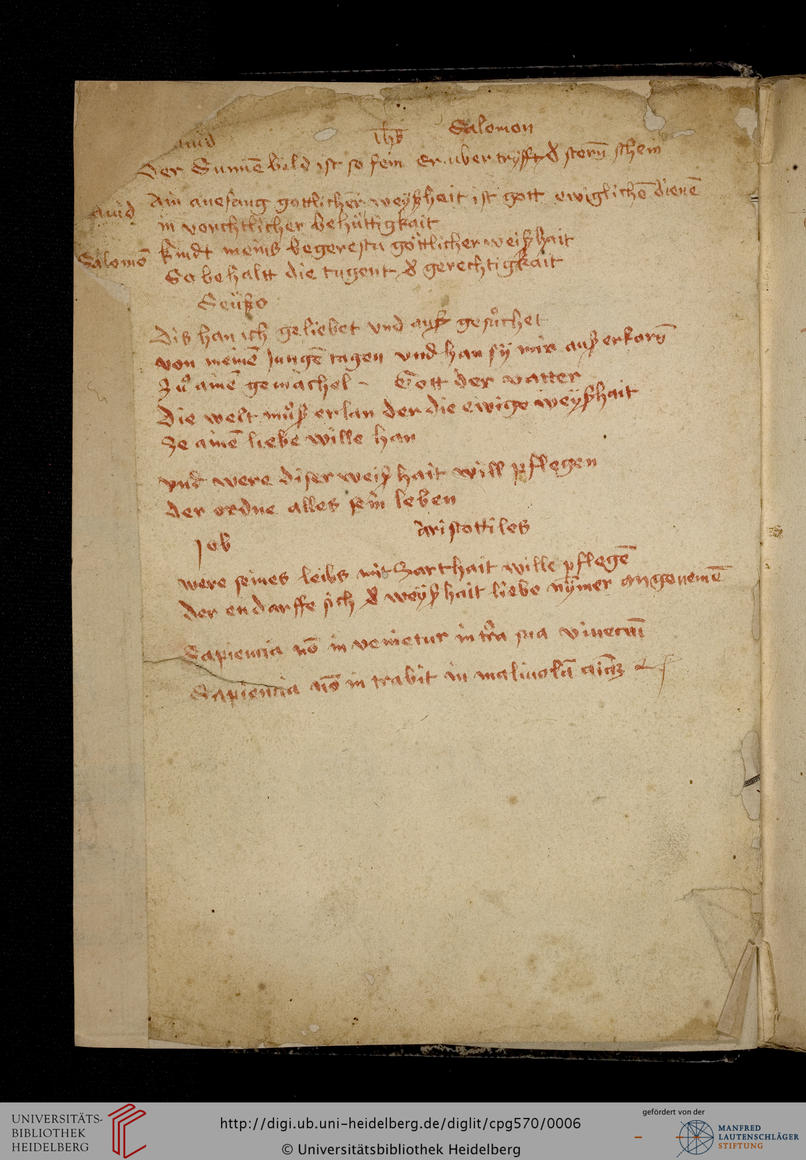 auid ihs Salomon
Der Sunnē bild ist so fein Er uber trÿfft d stern schein
auid Ain anefang gottlicher weyßheit ist gott ewiglichē dienē
in vorchtlicher behüttigkait
Salomō kindt meins begerestu göttlicher weißhait
So behaltt die tugent d gerechtigkait
Seüßo
Dis han ich geliebet vnd auß gesůchet
von meinē Jungē tagen vnd han sÿ mir auß erkorñ
Zů ainē gemachel – Gott der vatter
Die welt můß er lan der die ewige weÿßhait
Ze ainē liebe wille han
vnd were diser weißhait will pflegen
der ordne alles sein leben
Aristotiles
Job
were seines leibs mit Zarthait wille pflegē
der endarffe sich d weÿßhait liebe nÿmer angenemē
Sapiencia nō invenietur in tr̄a sua
Sapiencia nō intrabit in maliuolā aiāʒ
UNIVERSITÄTS-
BIBLIOTHEK
HEIDELBERG
http://digi.ub.uni-heidelberg.de/diglit/cpg570/0006
© Universitätsbibliothek Heidelberg
gefördert von der
MANFRED
LAUTENSCHLÄGER
STIFTUNG